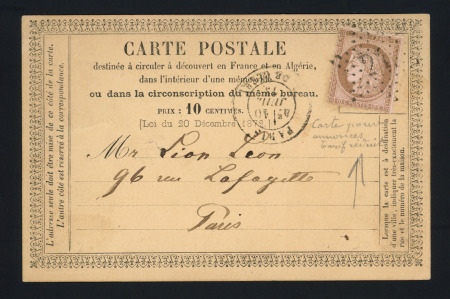 CARTE POSTALE
destinée à circuler à découvert en France et en Algérie,
dans l'intérieur d'une même
ou dans la circonscription du même bureau.
PRIX : 10 CENTIMES.
[Loi du 20 Décembre 1872.]
Mr Léon Leon
96 rue Lafayette
Paris
L'adresse seule doit être mise de ce côté de la carte.
L'autre côté est réservé à la correspondance.
Lorsque la carte est à destination
d'une ville, indiquer très-exactement la
rue et le numéro de la maison.
PARIS
Carte pour
annonces
Tarif réduit